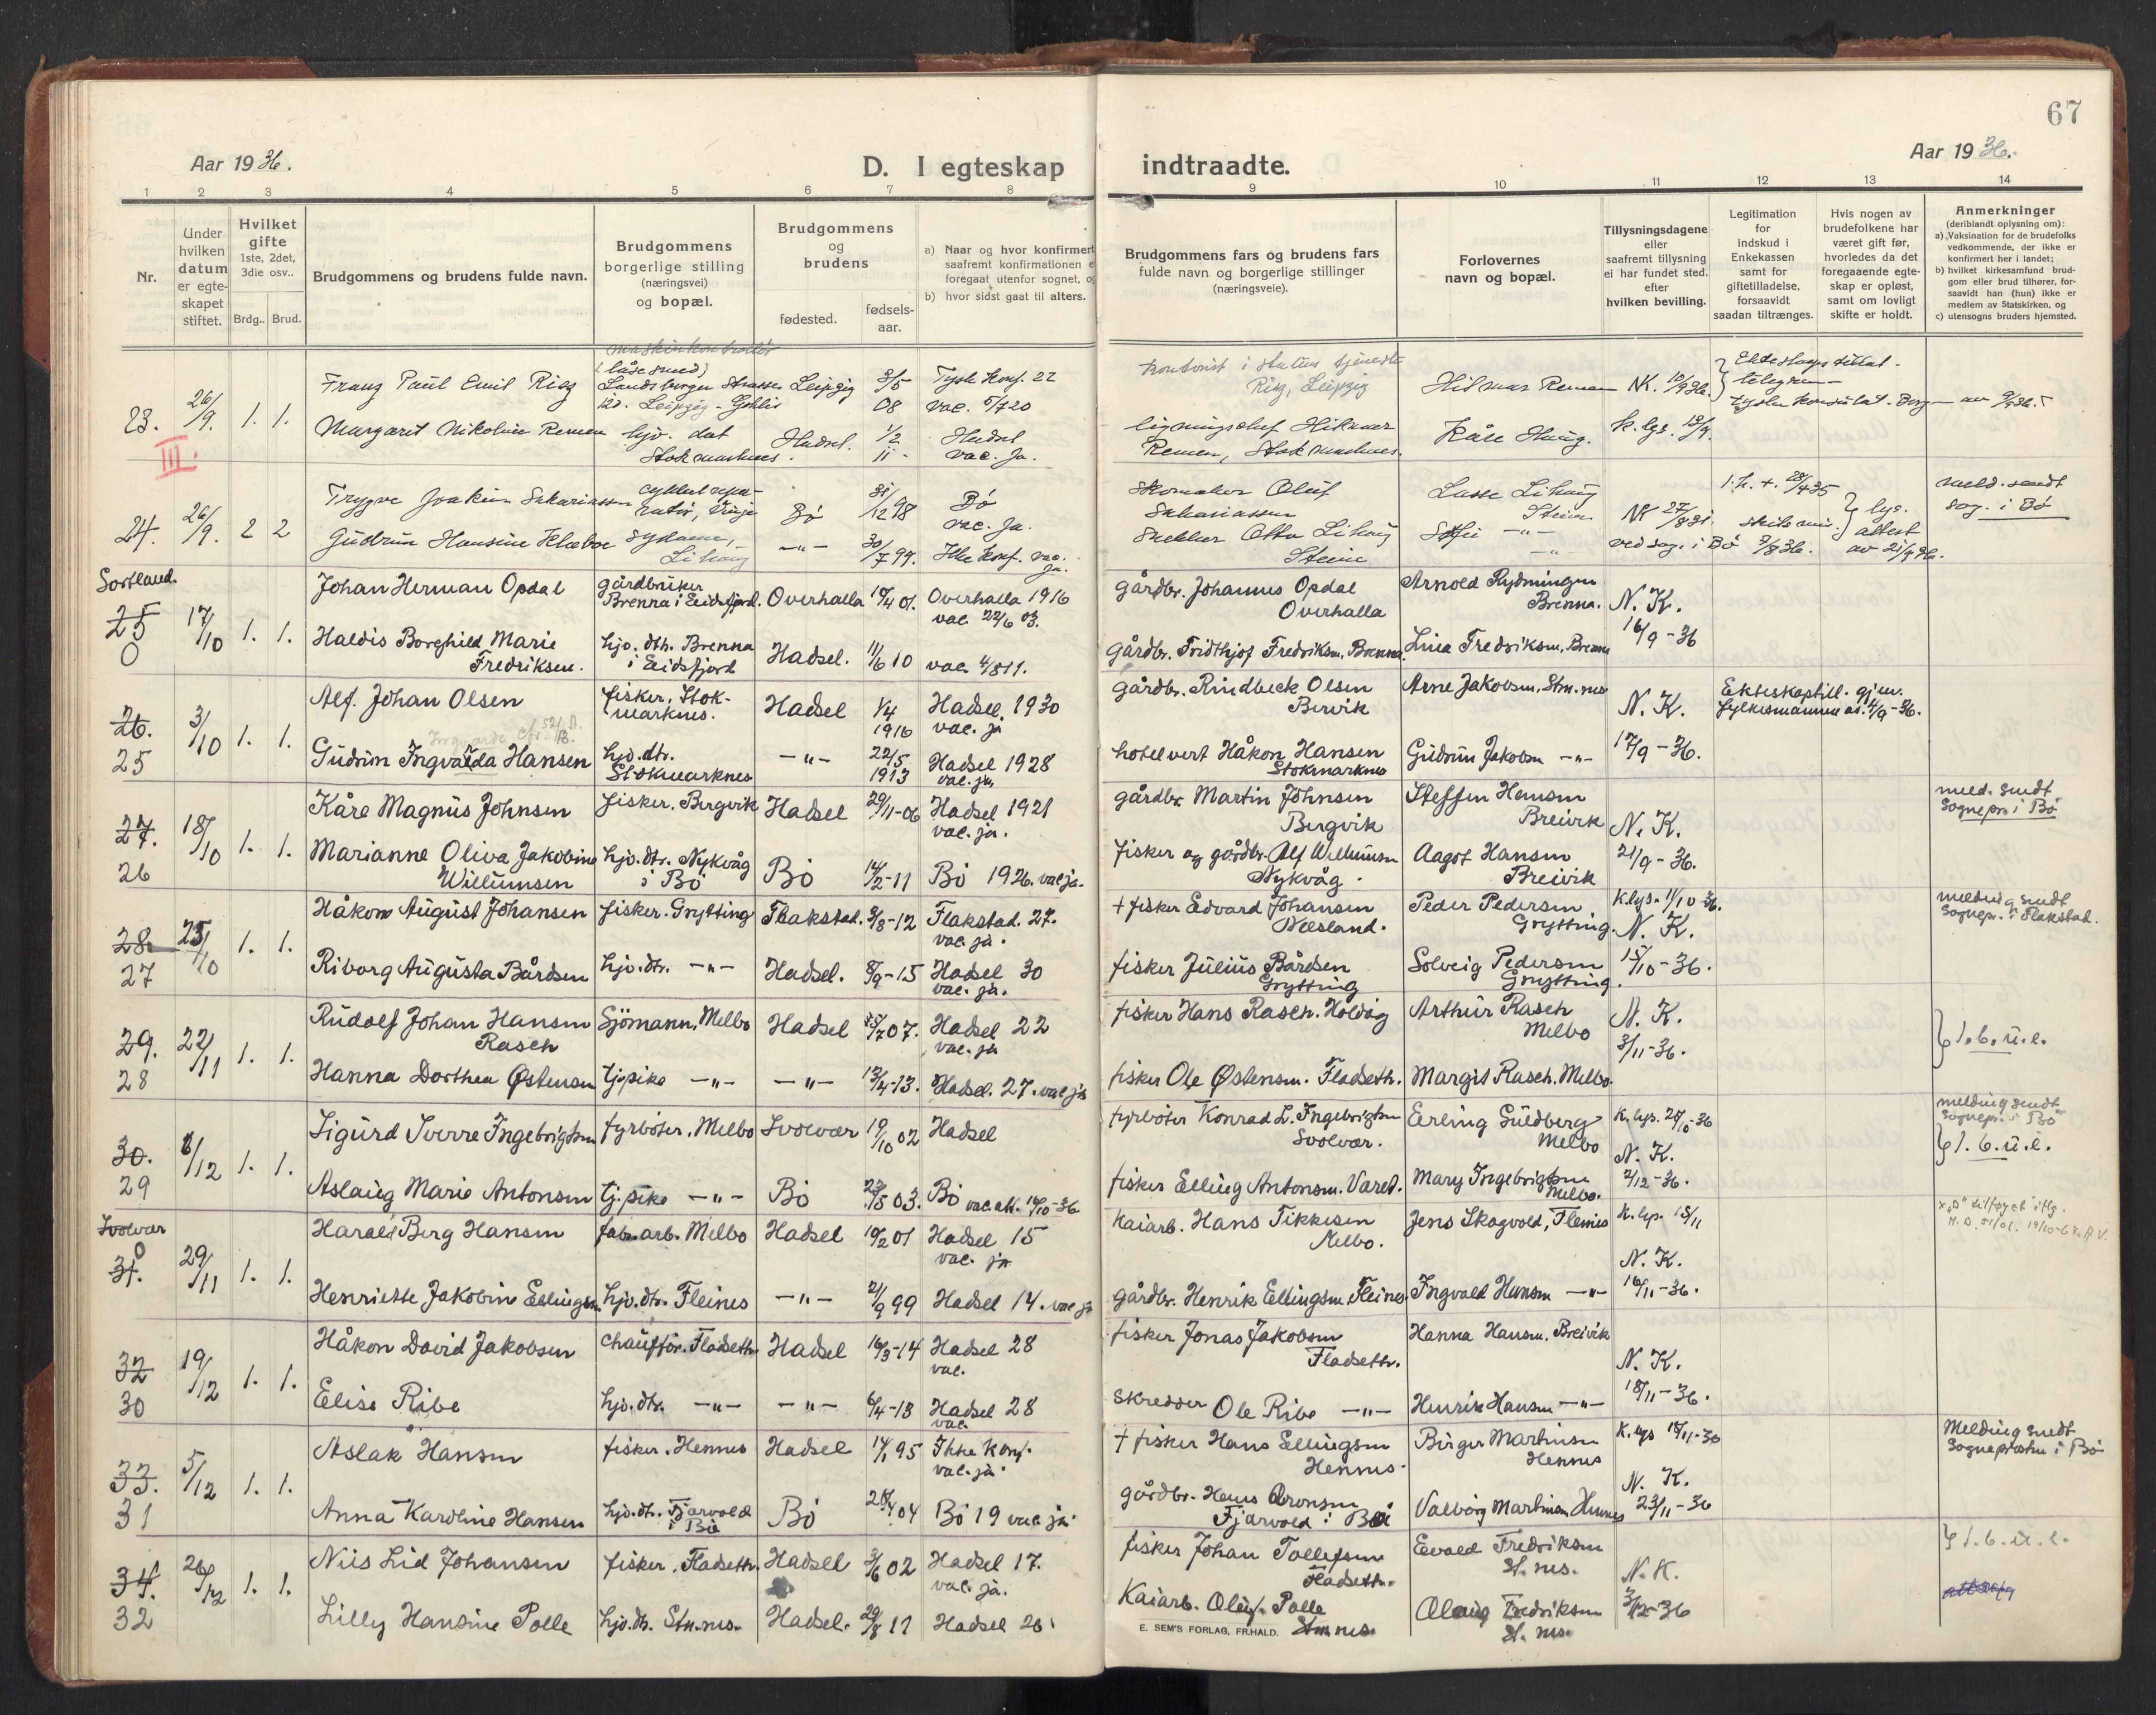 67
Aar 1936.
D. I egteskap
indtraadte.
Aar 1936.
1 2 3 4 5 6 7 8 9 10 11 12 13 14
Nr.
Under hvilken datum er egteskapet stiftet.
Hvilket gifte 1ste, 2det, 3die osv..
Brdg.. Brud.
Brudgommens og brudens fulde navn.
Brudgommens borgerlige stilling (næringsvei) og bopæl.
Brudgommens og brudens
fødested.
fødsels-aar.
a) Naar og hvor konfirmert
saafremt konfirmationen e
foregaat utenfor sognet, og
b) hvor sidst gaat til alters.
Brudgommens fars og brudens fars
fulde navn og borgerlige stillinger
(næringsveie).
Forlovernes
navn og bopæl.
Tillysningsdagene
eller
saafremt tillysning
ei har fundet sted.
efter
hvilken bevilling.
Legitimation
for
indskud i
Enkekassen
samt for
giftetilladelse,
forsaavidt
saadan tiltrænges.
Hvis nogen av
brudefolkene har
været gift før,
hvorledes da det
foregaaende egte-
skap er opløst,
samt om lovligt
skifte er holdt.
Anmerkninger
(deriblandt oplysning om):
a) Vaksination for de brudefolks
vedkommende, der ikke er
konfirmert her i landet;
b) hvilket kirkesamfund brud-
gom eller brud tilhører, for-
saavidt han (hun) ikke er
medlem av Statskirken, og
c) utensogns bruders hjemsted.
23. 26/9. 1. 1.
III.
maskinkontrollör
(låsesmed)
Franz Paul Emil Risz Landsberger Strasse Leipzig 3/5 08 Tysk konf. 22
120. Leipzig-Gohlis vac. 5/7 20
Risz, Leipzig
Hilmar Remen NK. 10/9 36. Ekteskapstillat.
telegram
Margaret Nikoline Remen hjv. dat Stokmarknes. Hadsel. 1/2 11 Hadsel vac. ja.
Hilmar Remen, Stokmarknes. Kåre Haug. k. lys. 13/9.
24. 26/9. 2 2
Trygve Joakim Sakariassen Bö 31/12 98 Bö vac. ja.
Skomaker Oluf Sakariassen Lasse Lihaug Steine NK 27/8 36. meld. sendt sog. i Bö
Gudrun Hansine Klæboe Lihaug —"— 30/7 99. Ikke konf. vac. ja.
Snekker Otto Lihaug Steine ved sog. i Bö lys. attest
Sortland.
25 0 17/10 1. 1.
Johan Herman Opdal gårdbruker Brenna i Eidsfjord. Overhalla 19/4 01. Overhalla 1916 vac 22/6 03.
gårdbr. Johannes Opdal Overhalla Arnold Rydningen Brenna. N. K. 16/9-36
Haldis Borghild Marie Fredriksen. hjv. dtr. Brenna i Eidsfjord Hadsel. 11/6 10 vac. 4/8 11.
gårdbr. Fridthjof Fredriksen, Brenna. Lina Fredriksen, Brenna
26. 25 3/10 1. 1.
Alf. Johan Olsen fisker, Stokmarknes. Hadsel 1/4 1916 Hadsel. 1930 vac. ja
gårdbr. Rindbeck Olsen Bervik Arne Jakobsen, Stm.nes N. K. 17/9-36. Ekteskaptill. gjen. fylkesmannen av. 4/9-36.
Gudrun Ingvalda Hansen hjv. dtr. Stokmarknes —"— 22/5 1913 Hadsel 1928 vac. ja
hotelvert Håkon Hansen Stokmarknes Gudrun Jakobsen —"—
27. 26 18/10 1. 1.
Kåre Magnus Johnsen fisker. Bergvik Hadsel 29/11-06 Hadsel 1921 vac. ja.
gårdbr. Martin Johnsen Bergvik Steffen Hansen Breivik N. K. 21/9-36. meld. sendt Sognepr. i Bö
Marianne Oliva Jakobine Willumsen hjv. dtr. Nykvåg i Bö Bö 14/2-11 Bö 1926. vac ja.
fisker og gårdbr. Alf Willumsen Nykvåg. Aagot Hansen Breivik
28. 27 25/10 1. 1.
Håkon August Johansen fisker. Grytting Flakstad. 3/8-12 Flakstad. 27. vac. ja.
† fisker Edvard Johansen Nesland. Peder Pedersen Grytting. K. lys. 11/10-36. N. K. 15/10-36. melding sendt Sognepr. i Flakstad.
Riborg Augusta Bårdsen hjv. dtr. —"— Hadsel. 8/9-15 Hadsel 30 vac. ja.
fisker Julius Bårdsen Grytting Solveig Pedersen Grytting.
29. 28 22/11 1. 1.
Rudolf Johan Hansen Rasch Sjömann, Melbo Hadsel 15/7 07. Hadsel 22 vac. ja
fisker Hans Rasch. Holdög Arthur Rasch Melbo N. K. 3/11-36. } 1. b. u. l.
Hanna Dorthea Østensen tj. pike —"— —"— 13/4-13. Hadsel. 27. vac ja
fisker Ole Østensen. Fladseth. Margit Rasch. Melbo.
30. 29 6/12 1. 1.
Sigurd Sverre Ingebrigtsen fyrböter, Melbo Svolvær 19/10 02 Hadsel
fyrböter Konrad L. Ingebrigtsen Svolvær. Erling Guldberg Melbo K. lys. 25/10-36 N. K. 2/12-36. melding sendt Sognepr. i Bö } 1. b. u. l.
Aslaug Marie Antonsen tj. pike —"— Bö 23/5 03. Bö vac. att. 14/10-36
fisker Elling Antonsen. Vared. Mary Ingebrigtsen Melbo.
Svolvær
0 31. 29/11 1. 1.
Harald Berg Hansen fabr. arb. Melbo Hadsel 10/2 01 Hadsel 15 vac. ja
Kaiarb. Hans Tikkesen Melbo. Jens Skogvold, Fleines K. lys. 15/11 N. K. 16/11-36.
Henriette Jakobine Ellingsen hjv. dtr. Fleines —"— 21/9 99 Hadsel 14. vac ja
gårdbr. Henrik Ellingsen, Fleines. Ingvald Hansen —"—
32 30 19/12 1. 1.
Håkon David Jakobsen Chaufför. Fladseth. Hadsel 16/3-14 Hadsel 28 vac.
fisker Jonas Jakobsen Fladseth. Hanna Hansen, Breivik N. K. 18/11-36.
Elise Ribe hjv. dtr. —"— —"— 6/4-13 Hadsel 28 vac.
Skredder Ole Ribe —"— Henrik Hansen —"—
33. 31 5/12 1. 1.
Aslak Hansen fisker. Hennes Hadsel 14/1 95 Ikke konf. vac. ja.
† fisker Hans Ellingsen Hennes. Birger Martinsen Hennes K. lys 15/11-36 N. K. 23/11-36 Melding sendt Sogneprsten i Bö
Anna Karoline Hansen hjv. dtr. Fjærvold i Bö Bö 28/4 04 Bö 19 vac ja.
gårdbr. Hans Aronsen Fjærvold i Bö Valborg Martinsen Hennes
34. 32 26/12 1. 1.
Nils Lid Johansen fisker, Fladseth. Hadsel 3/6 02 Hadsel 17. vac. ja.
fisker Johan Tollefsen Fladseth. Edvald Fredriksen St. nes. N. K. 3/12-36 } 1. b. u. l.
Lilly Hansine Polle hjv. dtr. Stm.nes. Hadsel. 29/8 11 Hadsel 26
Kaiarb. Oluf Polle Stm.nes Olaug Fredriksen St. nes.
E. SEM'S FORLAG, FR.HALD.